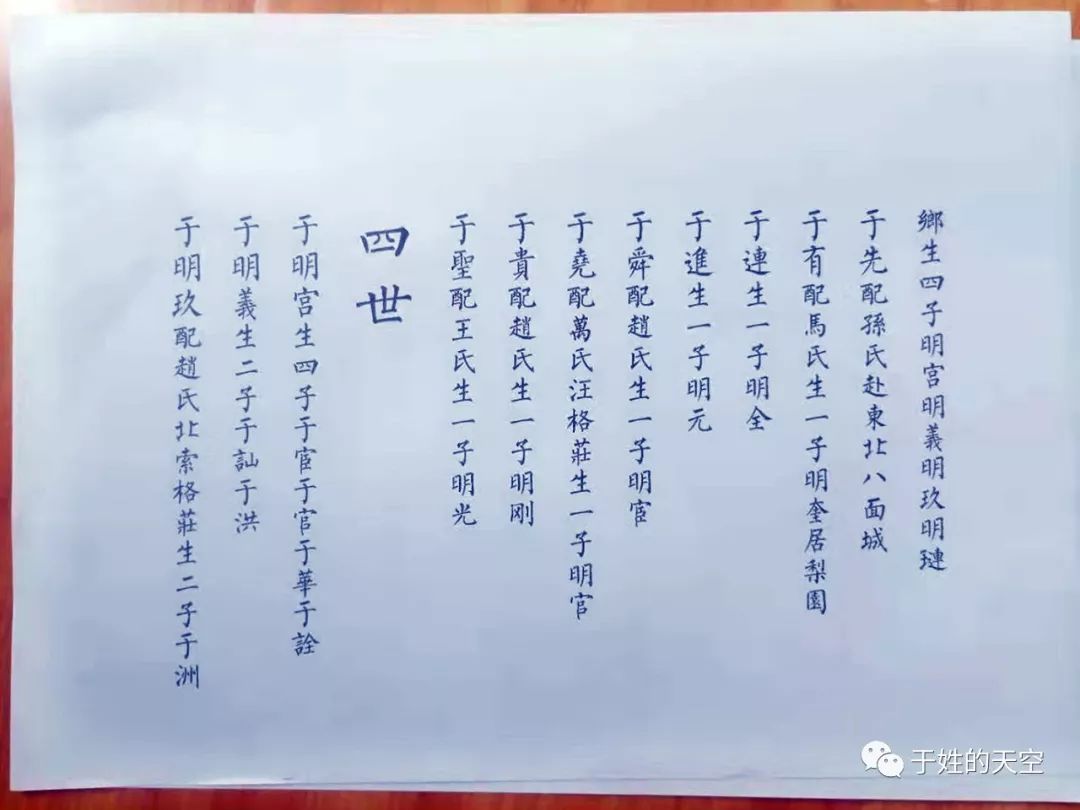 鄉生四子明宫明義明玖明璉
于先配孫氏赴東北八面城
于有配馬氏生一子明奎居梨園
于連生一子明全
于進生一子明元
于舜配趙氏生一子明宦
于堯配萬氏汪格莊生一子明官
于貴配趙氏生一子明刚
于聖配王氏生一子明光
四世
于明宫生四子于宦于官于華于詮
于明義生二子于訕于洪
于明玖配趙氏北索格莊生二子于洲
于姓的天空